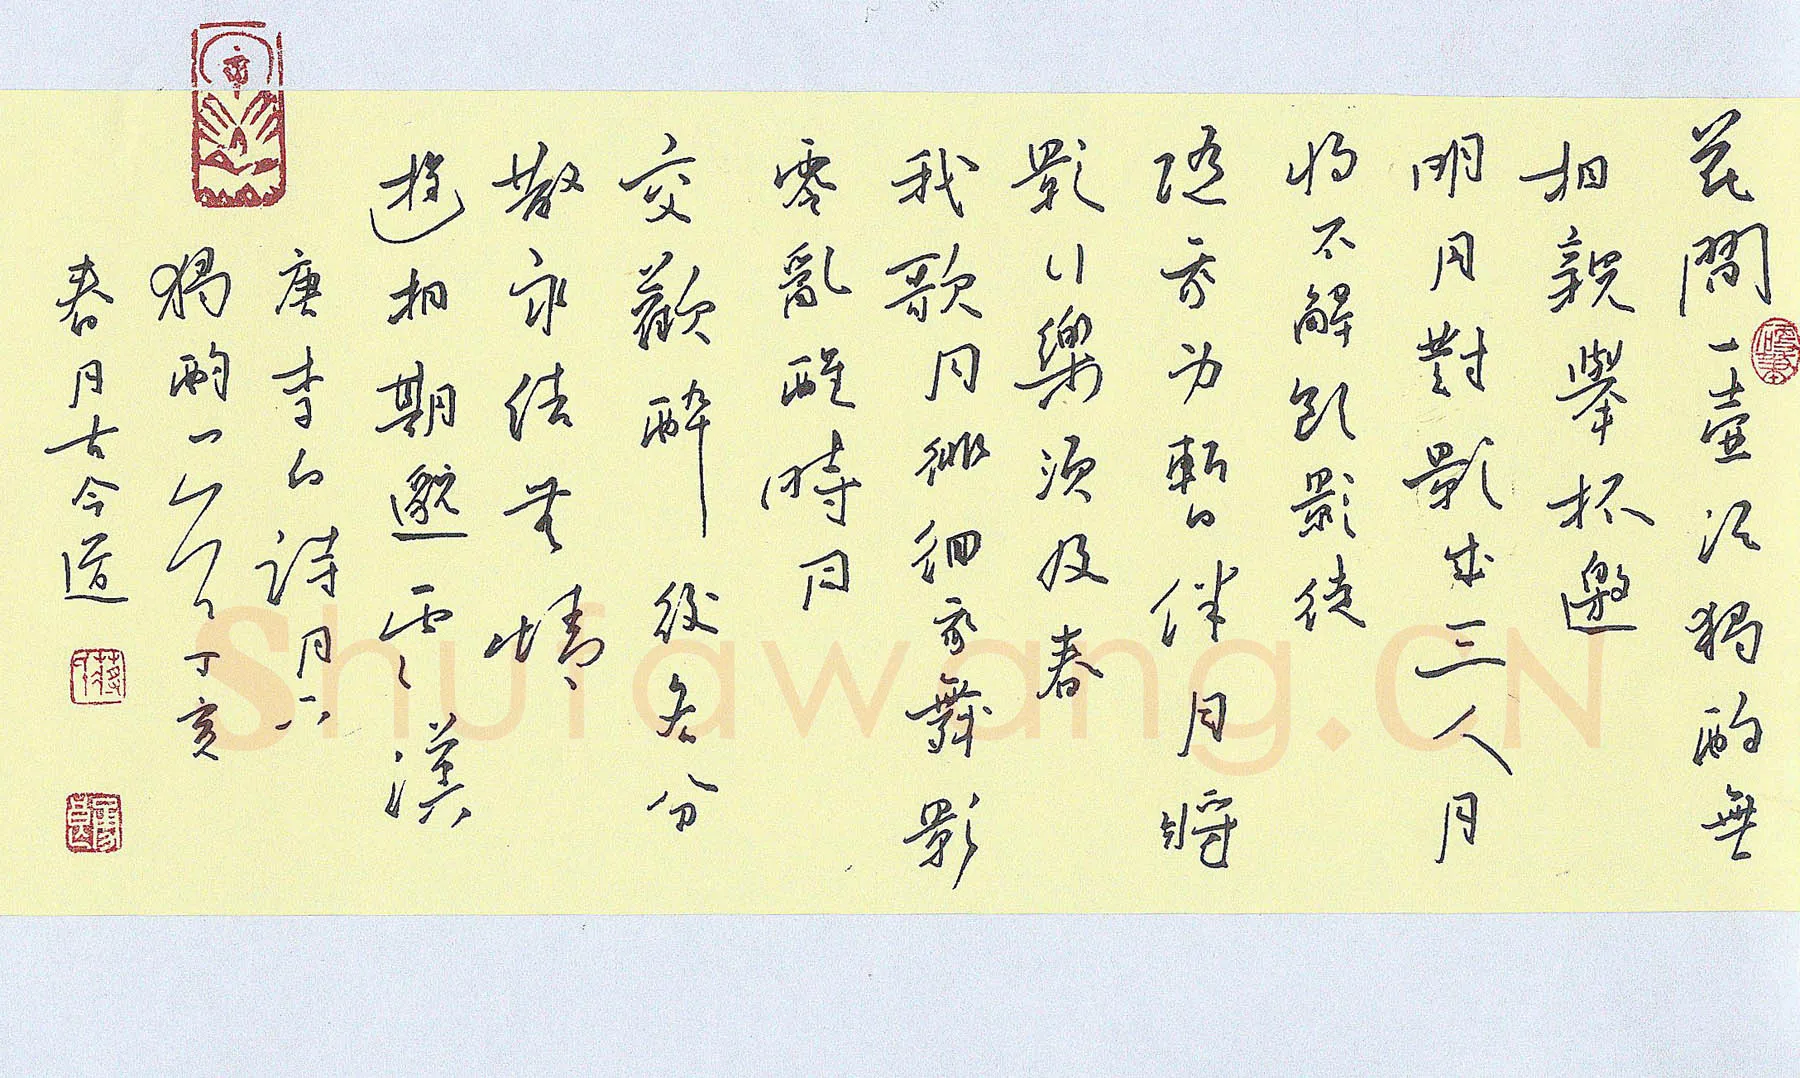 花間一壺酒獨酌無
相親舉杯邀
明月對影成三人月
既不解飲影徒
隨我身暫伴月將
影行樂須及春
我歌月徘徊我舞影
零亂醒時同
交歡醉後各分
散永結無情
遊相期邈雲漢
唐李白詩月下
獨酌一丁亥
春月古今道
Shufawang.CN